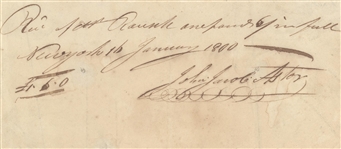 Rec'd of Mr Raunk one pound 6/ in full
Newyork 16 January 1800
£1.6.0
John Jacob Astor